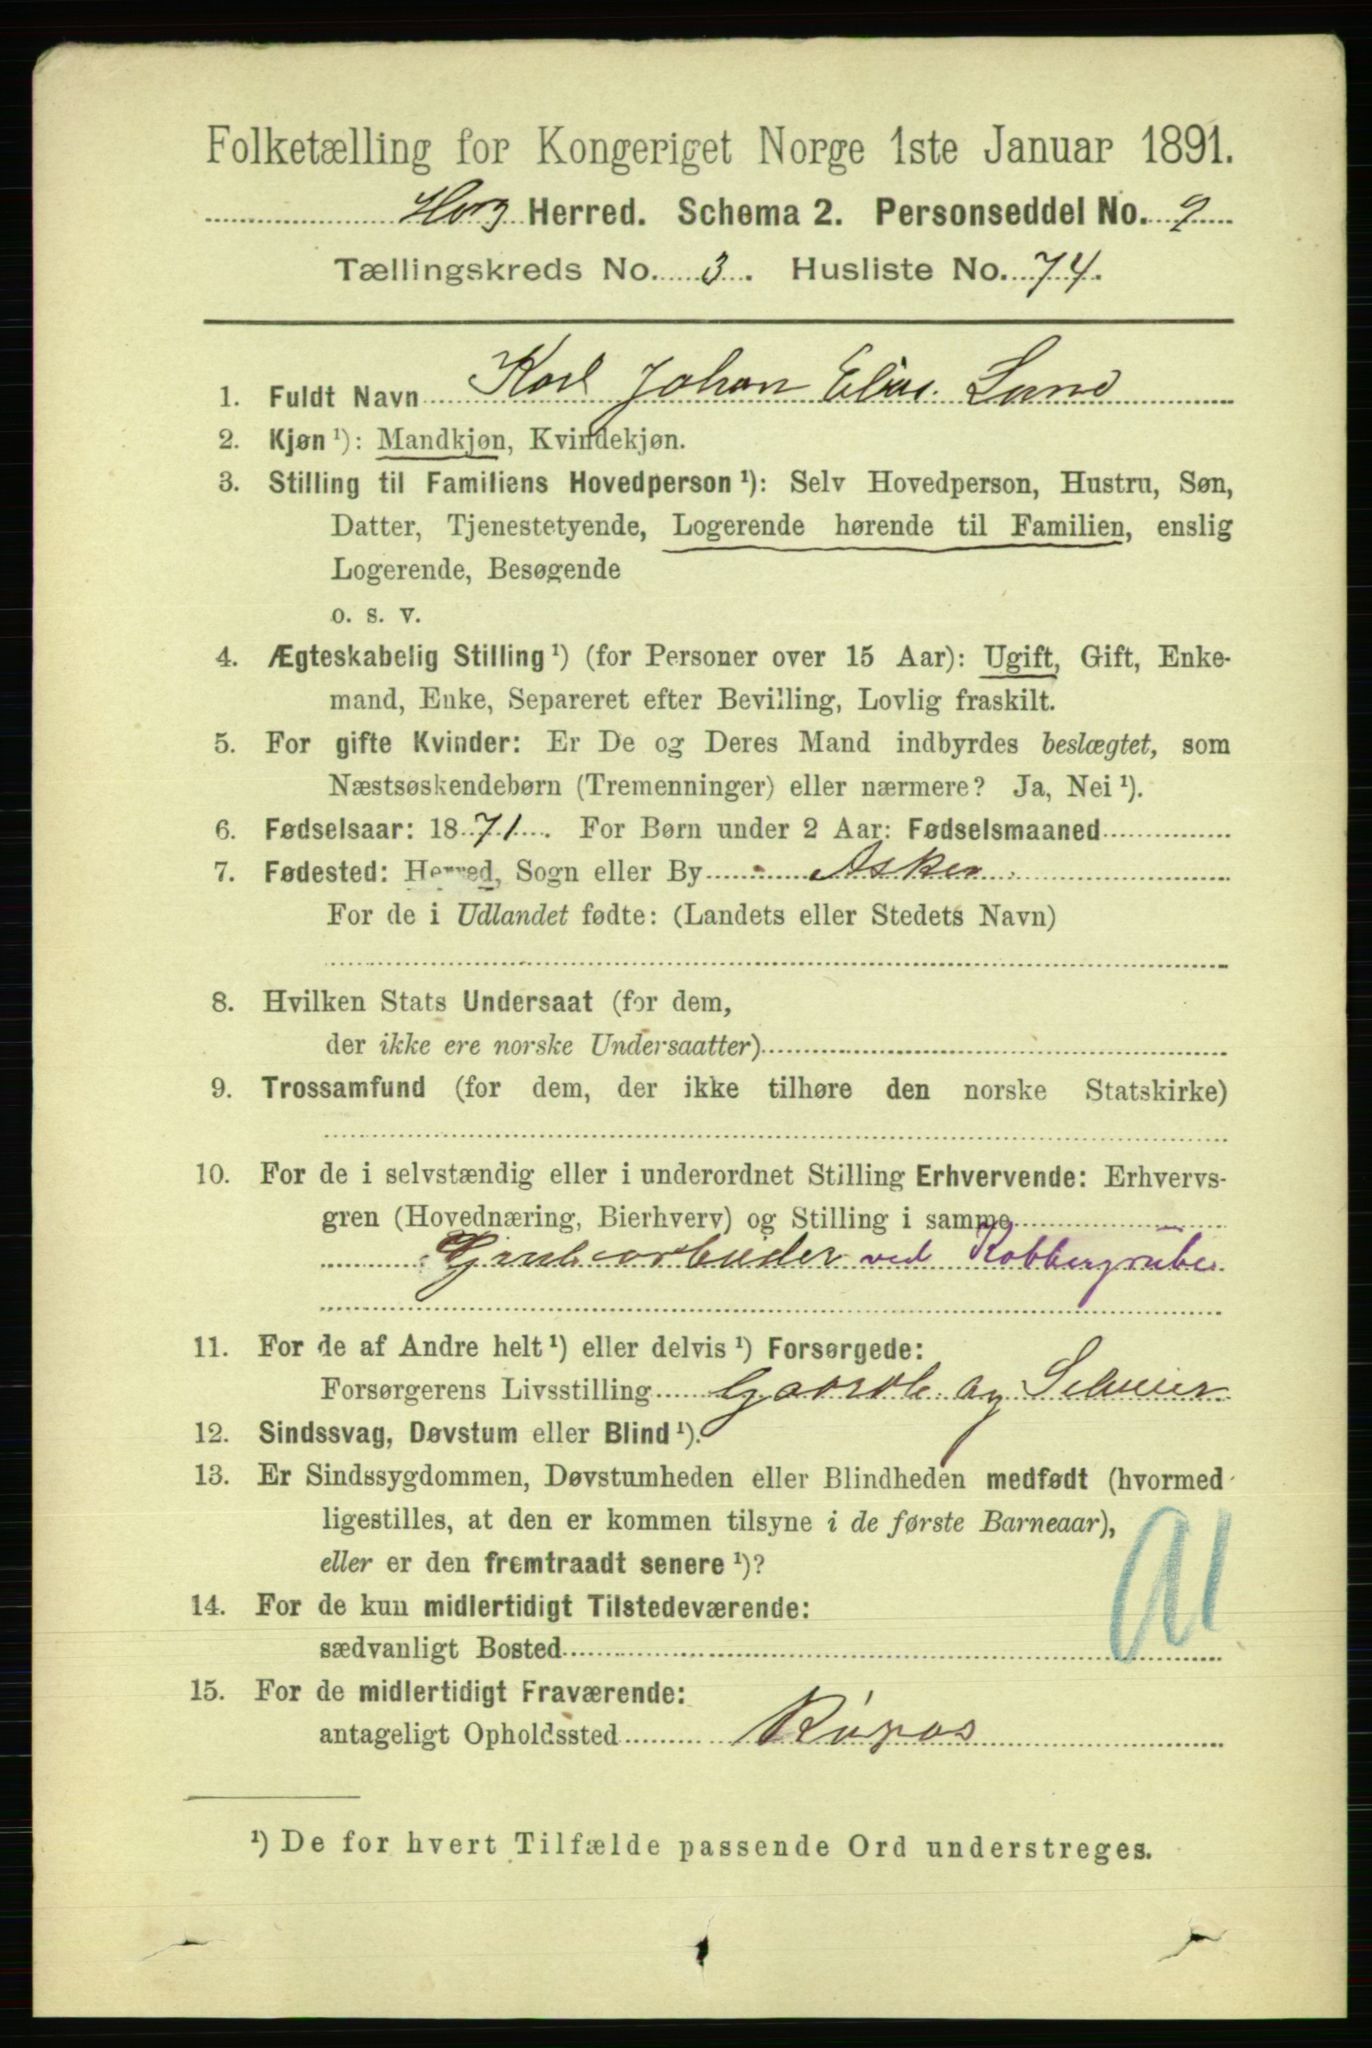 Folketælling for Kongeriget Norge 1ste Januar 1891.
Horg Herred. Schema 2. Personseddel No. 9
Tællingskreds No. 3. Husliste No. 74.
1. Fuldt Navn Karl Johan Elias Lund
2. Kjøn ¹): Mandkjøn, Kvindekjøn.
3. Stilling til Familiens Hovedperson ¹): Selv Hovedperson, Hustru, Søn,
Datter, Tjenestetyende, Logerende hørende til Familien, enslig
Logerende, Besøgende
o. s. v.
4. Ægteskabelig Stilling ¹) (for Personer over 15 Aar): Ugift, Gift, Enke-
mand, Enke, Separeret efter Bevilling, Lovlig fraskilt.
5. For gifte Kvinder: Er De og Deres Mand indbyrdes beslægtet, som
Næstsøskendebørn (Tremenninger) eller nærmere? Ja, Nei ¹).
6. Fødselsaar: 1871. For Børn under 2 Aar: Fødselsmaaned
7. Fødested: Herred, Sogn eller By Asker
For de i Udlandet fødte: (Landets eller Stedets Navn)
8. Hvilken Stats Undersaat (for dem,
der ikke ere norske Undersaatter)
9. Trossamfund (for dem, der ikke tilhøre den norske Statskirke)
10. For de i selvstændig eller i underordnet Stilling Erhvervende: Erhvervs-
gren (Hovednæring, Bierhverv) og Stilling i samme
Grubearbeider ved Kobbergrube
11. For de af Andre helt ¹) eller delvis ¹) Forsørgede:
Forsørgerens Livsstilling Gaardb. og Selveier
12. Sindssvag, Døvstum eller Blind ¹).
13. Er Sindssygdommen, Døvstumheden eller Blindheden medfødt (hvormed
ligestilles, at den er kommen tilsyne i de første Barneaar),
eller er den fremtraadt senere ¹)?
14. For de kun midlertidigt Tilstedeværende:
sædvanligt Bosted
15. For de midlertidigt Fraværende:
antageligt Opholdssted Røros
¹) De for hvert Tilfælde passende Ord understreges.